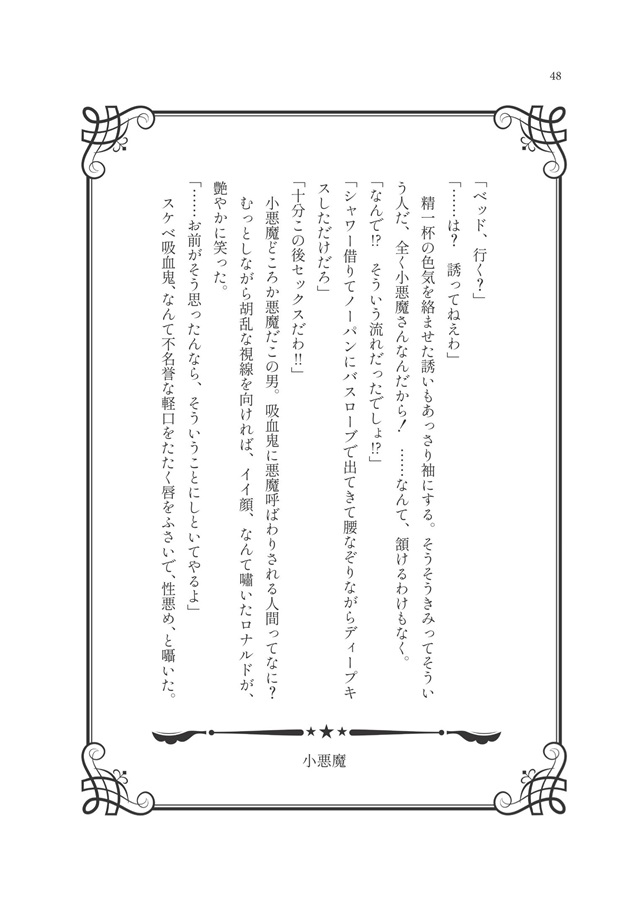 48
「ベッド、行く？」
「……は？　誘ってねえわ」
　精一杯の色気を絡ませた誘いもあっさり袖にする。そうそうきみってそうい
う人だ、全く小悪魔さんなんだから！　……なんて、頷けるわけもなく。
「なんで⁉　そういう流れだったでしょ⁉」
「シャワー借りてノーパンにバスローブで出てきて腰なぞりながらディープキ
スしただけだろ」
「十分この後セックスだわ‼」
　小悪魔どころか悪魔だこの男。吸血鬼に悪魔呼ばわりされる人間ってなに？
　むっとしながら胡乱な視線を向ければ、イイ顔、なんて嘯いたロナルドが、
艶やかに笑った。
「……お前がそう思ったんなら、そういうことにしといてやるよ」
　スケベ吸血鬼、なんて不名誉な軽口をたたく唇をふさいで、性悪め、と囁いた。
小悪魔